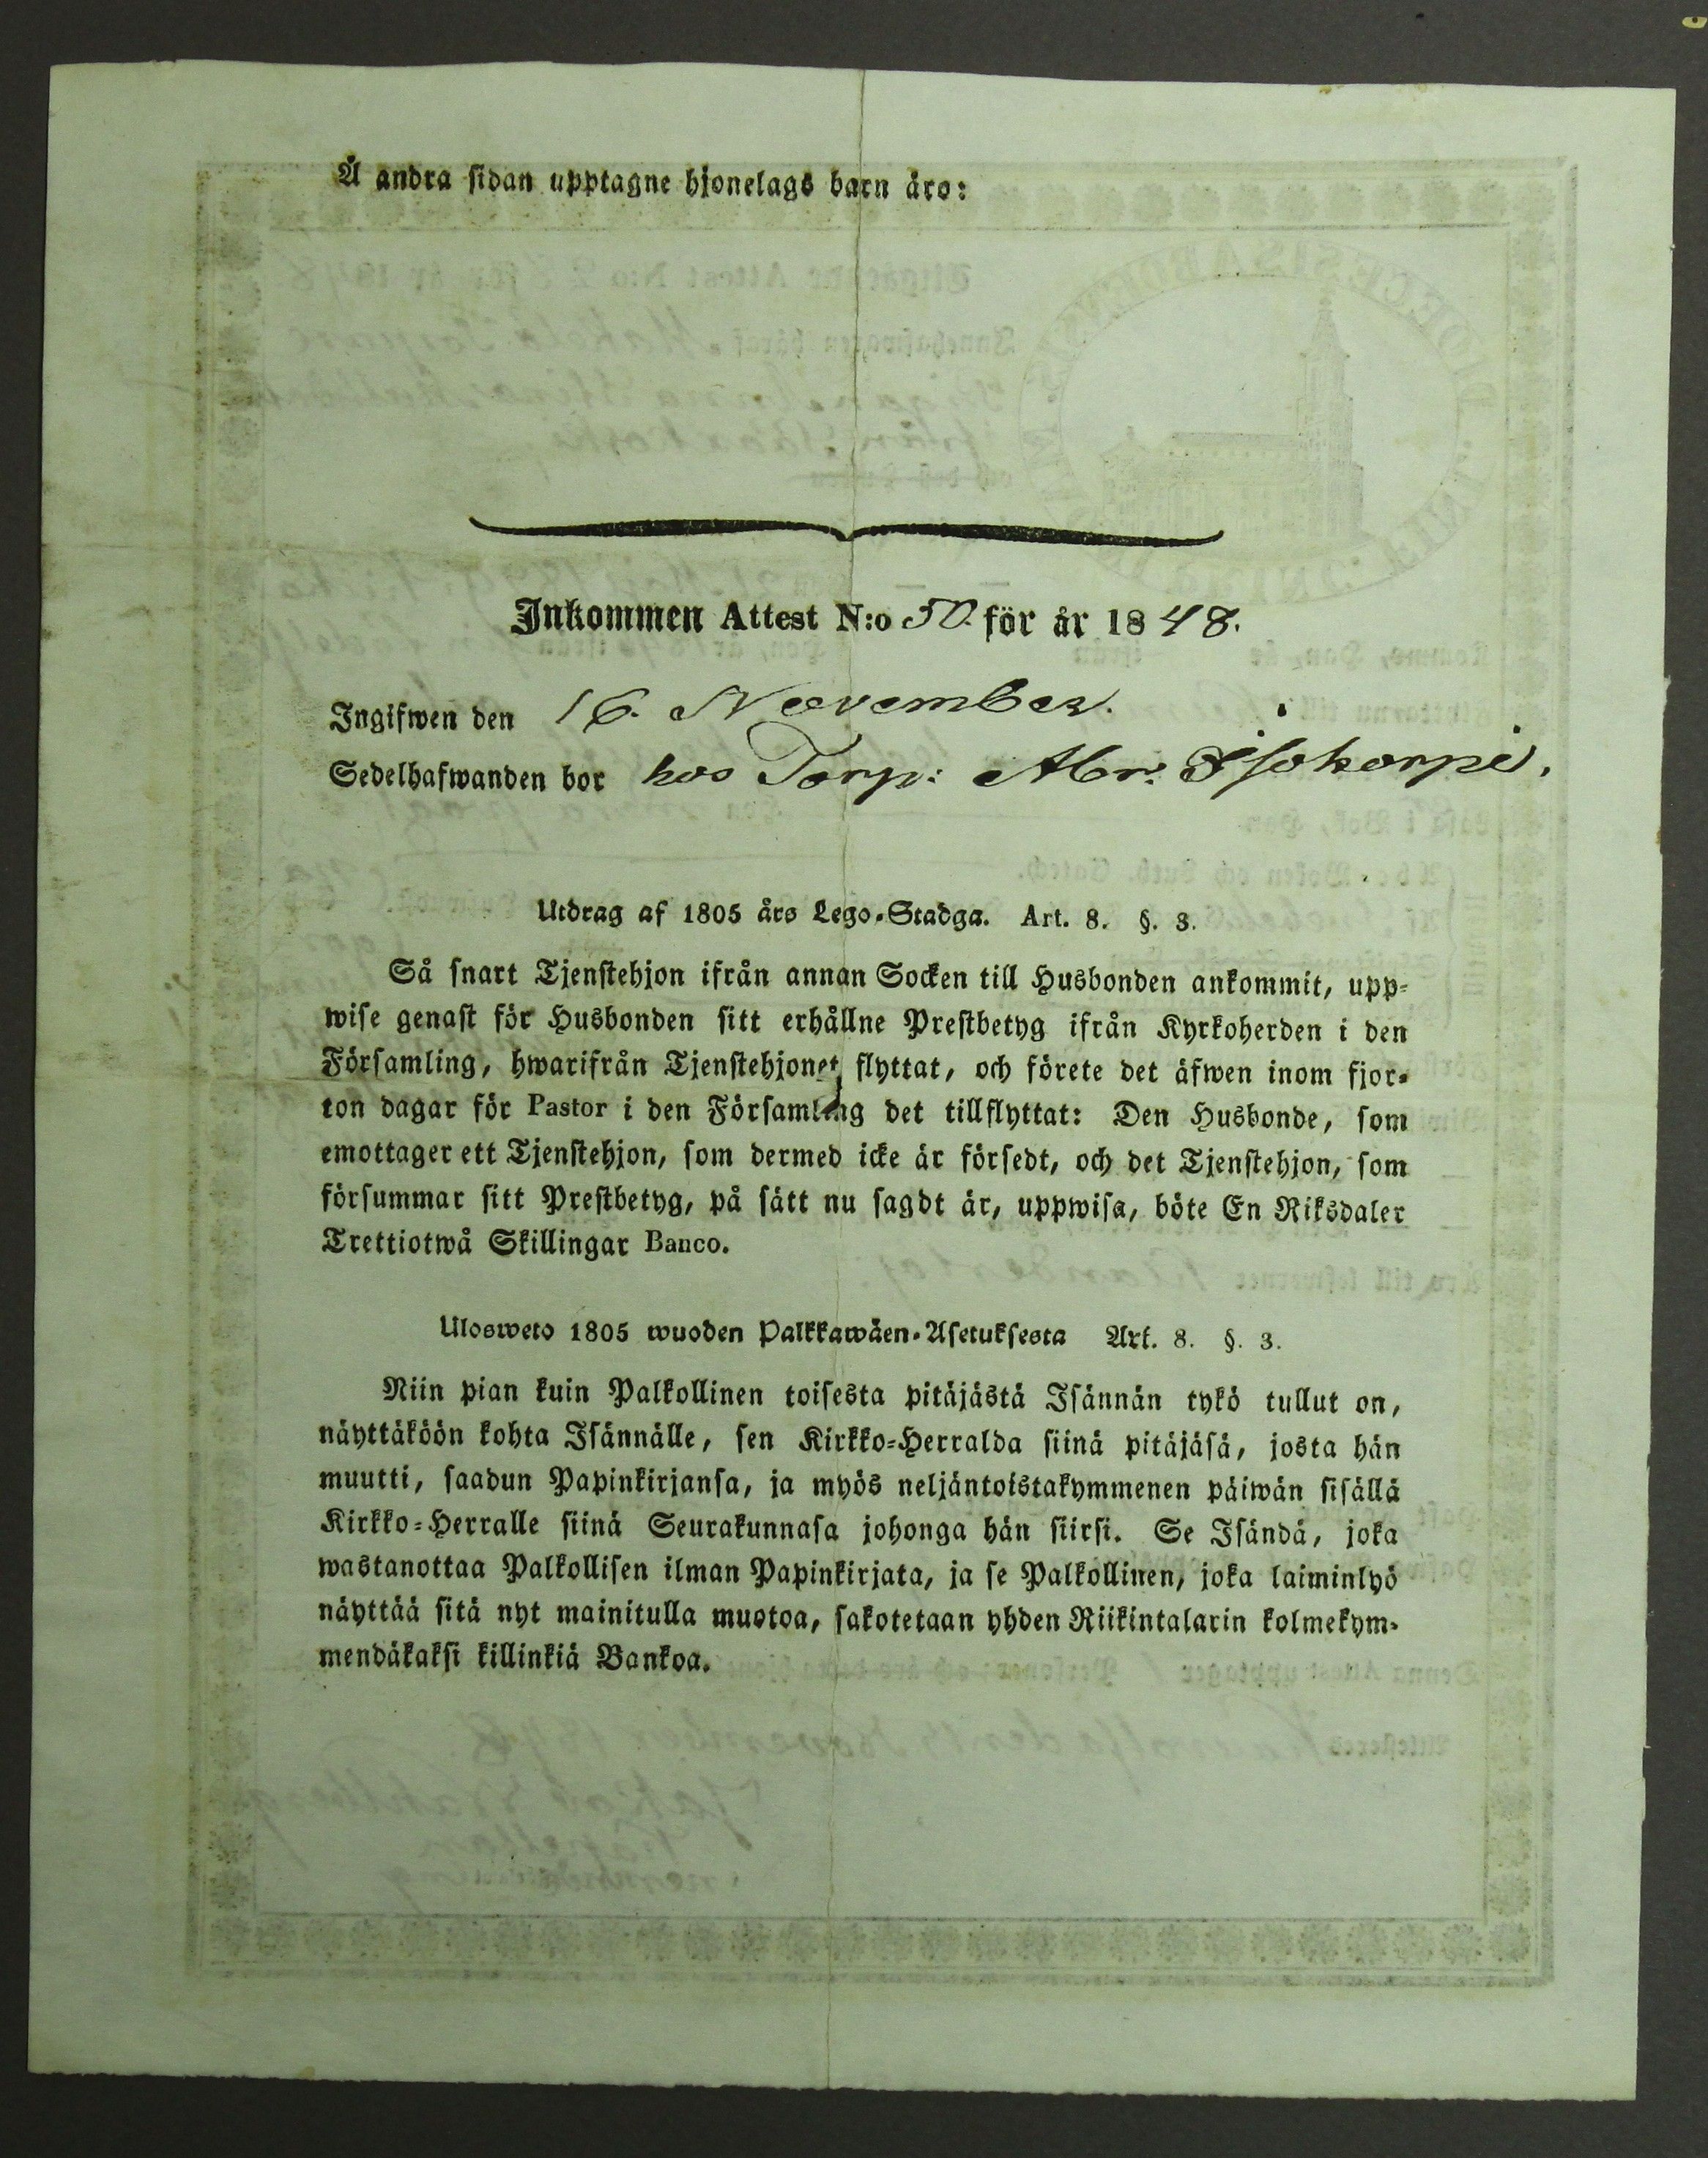 Å andra sidan upptagne hjonelags barn äro:
Inkommen Attest N:o 50. för år 1848.
Ingifwen den 16. November.
Sedelhafwanden bor hos Torp: Abr: Isokorpi.
Utdrag af 1805 års Lego-Stadga. Art. 8. §. 3.
Så snart Tjenstehjon ifrån annan Socken till Husbonden ankommit, upp-
wise genast för Husbonden sitt erhållne Prestbetyg ifrån Kyrkoherden i den
Församling, hwarifrån Tjenstehjonet flyttat, och förete det äfwen inom fjor-
ton dagar för Pastor i den Församling det tillflyttat: Den Husbonde, som
emottager ett Tjenstehjon, som dermed icke är försedt, och det Tjenstehjon, som
försummar sitt Prestbetyg, på sätt nu sagdt är, uppwisa, böte En Riksdaler
Trettiotwå Skillingar Banco.
Ulosweto 1805 wuoden Palkkawäen-Asetuksesta Art. 8. §. 3.
Niin pian kuin Palkollinen toisesta pitäjästä Isännän tykö tullut on,
näyttäköön kohta Isännälle, sen Kirkko-Herralda siinä pitäjäsä, josta hän
muutti, saadun Papinkirjansa, ja myös neljäntoistakymmenen päiwän sisällä
Kirkko-Herralle siinä Seurakunnasa johonga hän siirsi. Se Isändä, joka
wastanottaa Palkollisen ilman Papinkirjata, ja se Palkollinen, joka laiminlyö
näyttää sitä nyt mainitulla muotoa, sakotetaan yhden Riikintalarin kolmekym-
mendäkaksi killinkiä Bankoa.